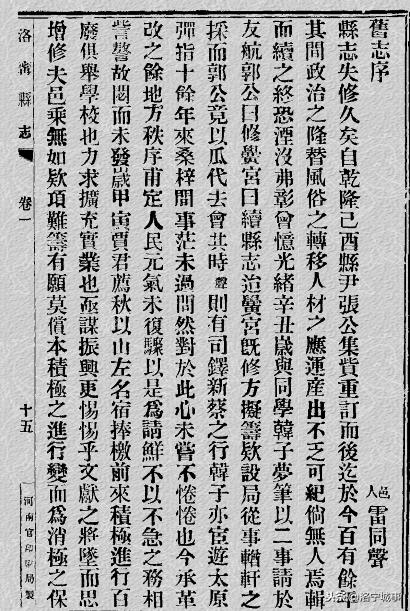 舊志序
邑人雷同聲
縣志失修久矣自乾隆己酉縣尹張公集貲重訂而後迄於今百有餘
其間政治之隆替風俗之轉移人材之應運產出不乏可紀倘無人焉輯
而續之終恐湮沒弗彰曾憶光緒辛丑歲與同學韓子夢筆以二事請於
友航郭公曰修黌宮曰續縣志迨黌宮旣修方擬籌欵設局從事輶軒之
採而郭公竟以瓜代去會其時聲則有司鐸新蔡之行韓子亦宦遊太原
彈指十餘年來桑梓間事茫未過問然對於此心未嘗不惓惓也今承革
改之餘地方秩序甫定人民元氣未復驟以是爲請鮮不以不急之務相
訾謷故閟而未發嵗甲寅賈君薦秋以山左名宿捧檄前來積極進行百
廢俱舉學校也力求擴充實業也亟謀振興更惕惕乎文獻之將墜而思
增修夫邑乘無如欵項難籌有願莫償本積極之進行變而爲消極之保
洛甯縣志
卷一
十五
河南官印刷局製
洛宁城事